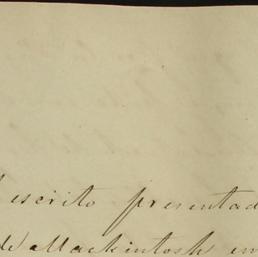 escrito presentad
Mackintosh en